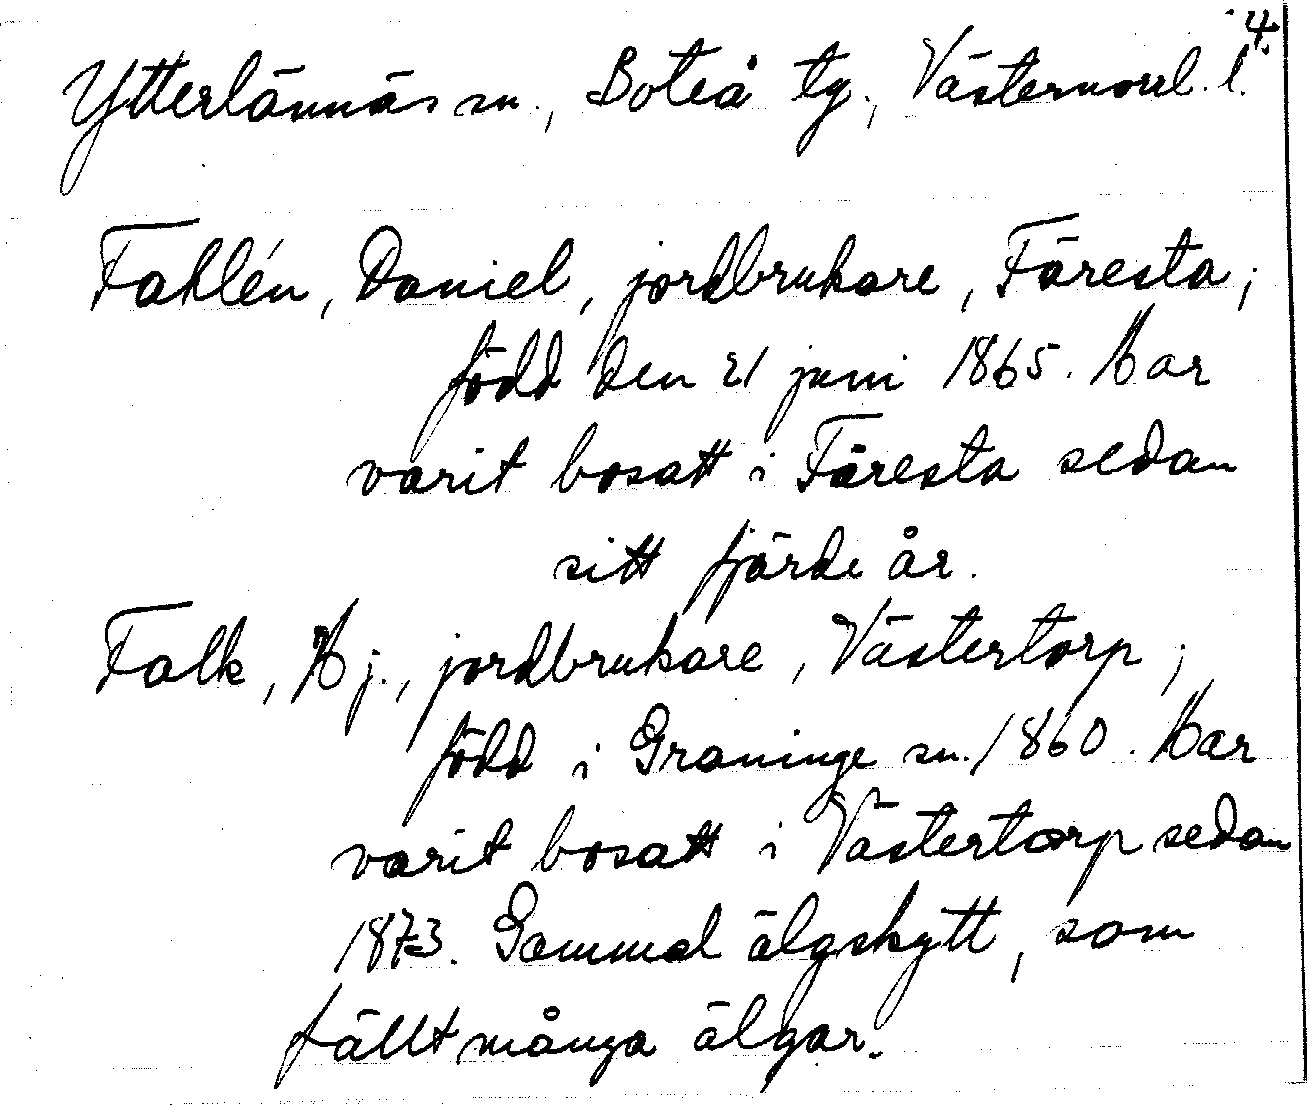 4.
Ytterlännäs sn., Boteå tg., Västernorrl. l.
Fahlén, Daniel, jordbrukare, Färesta;
född den 21 juni 1865. Har
varit bosatt i Färesta sedan
sitt fjärde år.
Falk, Hj., jordbrukare, Västertorp;
född i Graninge sn. 1860. Har
varit bosatt i Västertorp sedan
1873. Gammal älgskytt, som
fällt många älgar.